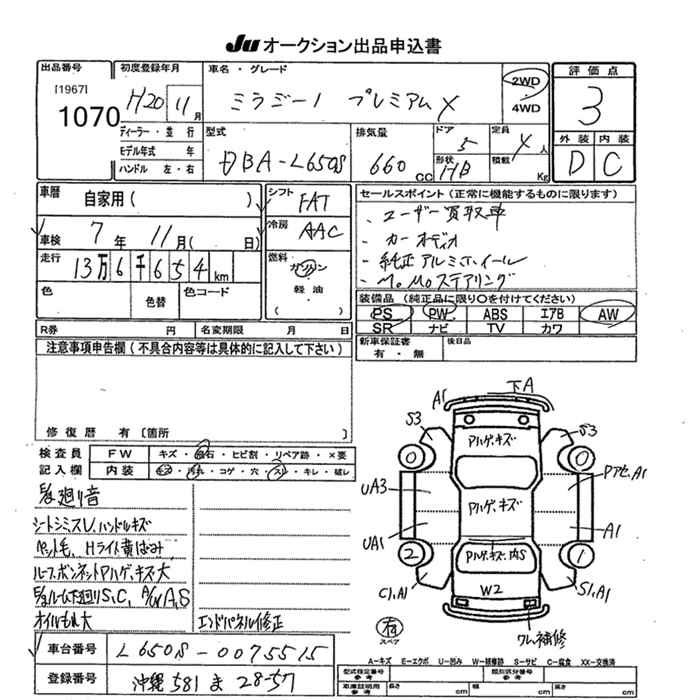 JU オークション出品申込書
出品番号 初度登録年月 車名・グレード 2WD 評価点
[1967] 1070 H20 11月 ミラジーノ プレミアムX 4WD 3
ディーラー・並行 型式 排気量 ドア 定員 外装 内装
モデル年式 年 DBA-L650S 660cc 5 4人 D C
ハンドル 左・右 形状 HB 積載 Kg
車歴 自家用( ) シフト FAT セールスポイント(正常に機能するものに限ります)
車検 7年 11月( 日) 冷房 AAC ・ユーザー買取車
走行 13万6千654km 燃料 ガソリン ・カーオーディオ
・純正アルミホイール
色 色替 色コード 軽油 ・MoMoステアリング
( ) 装備品(純正品に限り○を付けてください)
PS PW ABS エアB AW
R券 円 名変期限 月 日 SR ナビ TV カワ
注意事項申告欄(不具合内容等は具体的に記入して下さい) 新車保証書 有・無 後日品
修復歴 有 〔箇所 〕
検査員 FW キズ・飛石・ヒビ割・リペア跡・×要
記入欄 内装 キズ・汚れ・コゲ・穴・スレ・キレ・破レ
廻り音
シートシミ、スレ、ハンドルキズ
ペット毛、Hライト黄ばみ
ルーフ、ボンネットアハゲ、キズ大
下廻りS,C,
オイルもれ大
エンドパネル修正
車台番号 L650S-0075515
登録番号 沖縄 581 ま 28-57
下A
A1
S3 S3
アハゲ、キズ
0 0
UA3 アハゲ、キズ A1
UA1 A1
2 1
C1,A1 W2 S1,A1
有 スペア
ワレ補修
A-キズ E-エクボ U-凹み W-補修跡 S-サビ C-腐食 XX-交換済
型式指定番号 参考 類別区分番号 参考
車庫証明用 参考 長さ cm 幅 cm 高さ cm